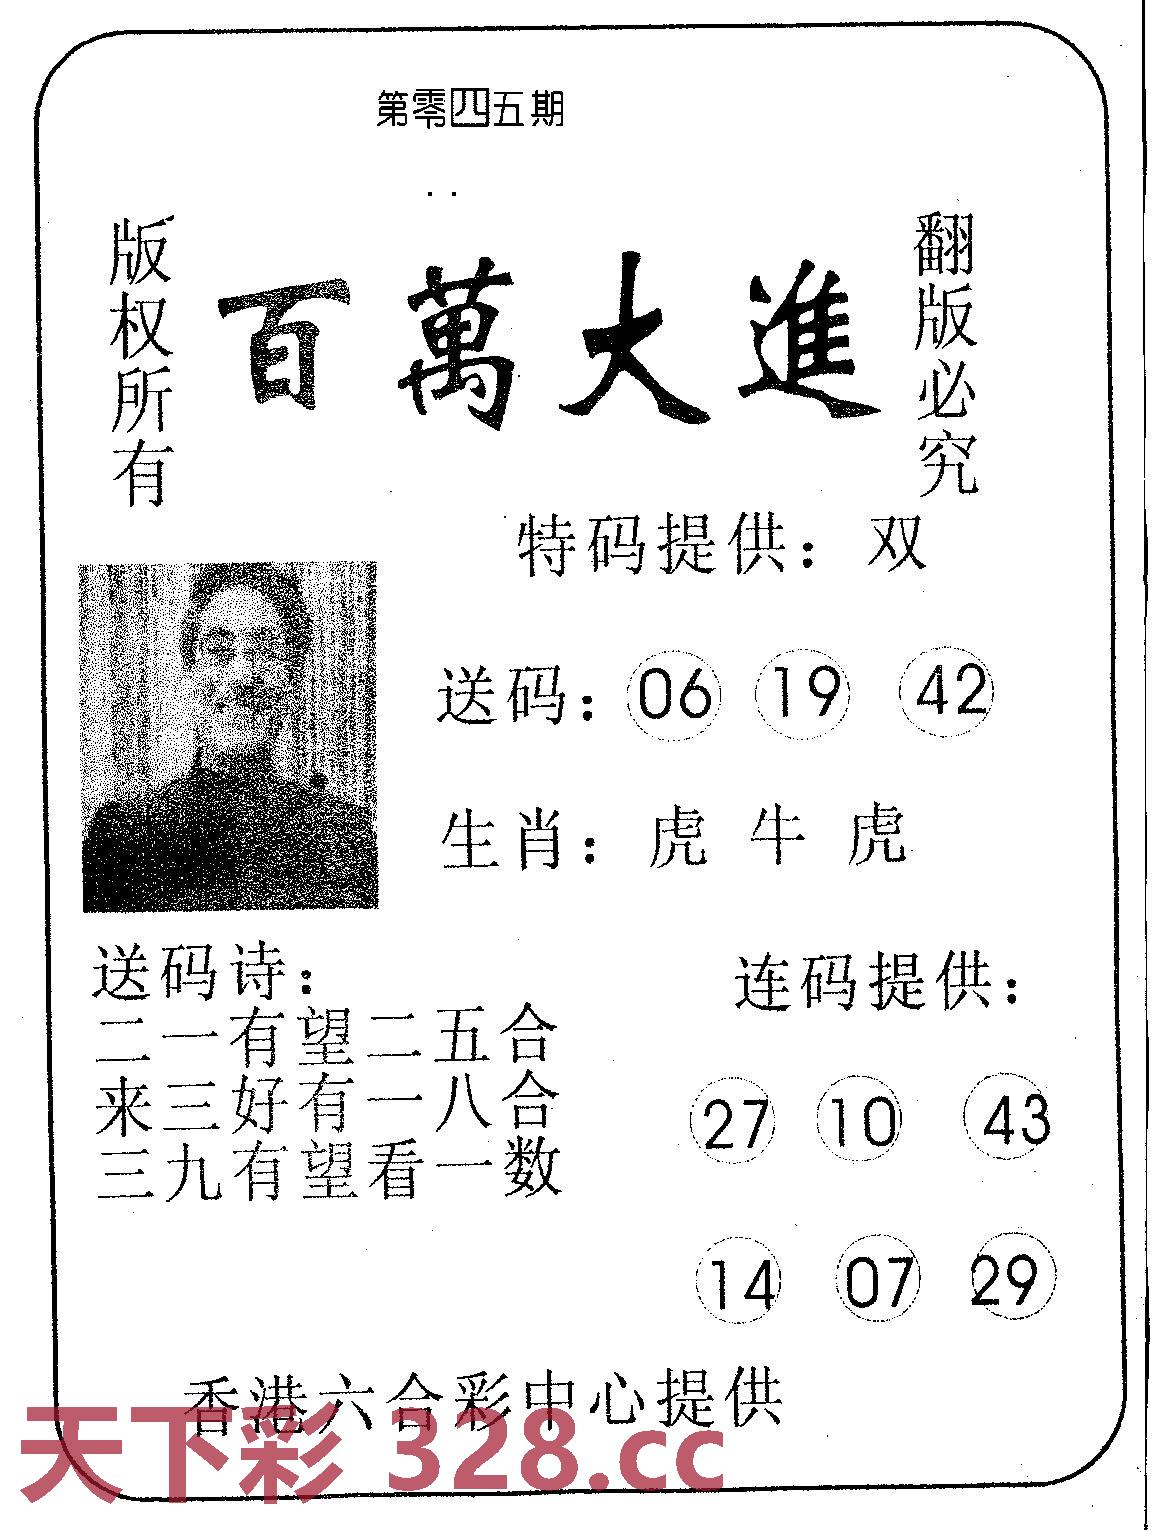 第零四五期
版权所有
百萬大進
翻版必究
特码提供：双
送码：06 19 42
生肖：虎 牛 虎
送码诗：
二一有望二五合
来三好有一八合
三九有望看一数
连码提供：
27 10 43
14 07 29
香港六合彩中心提供
天下彩 328.cc